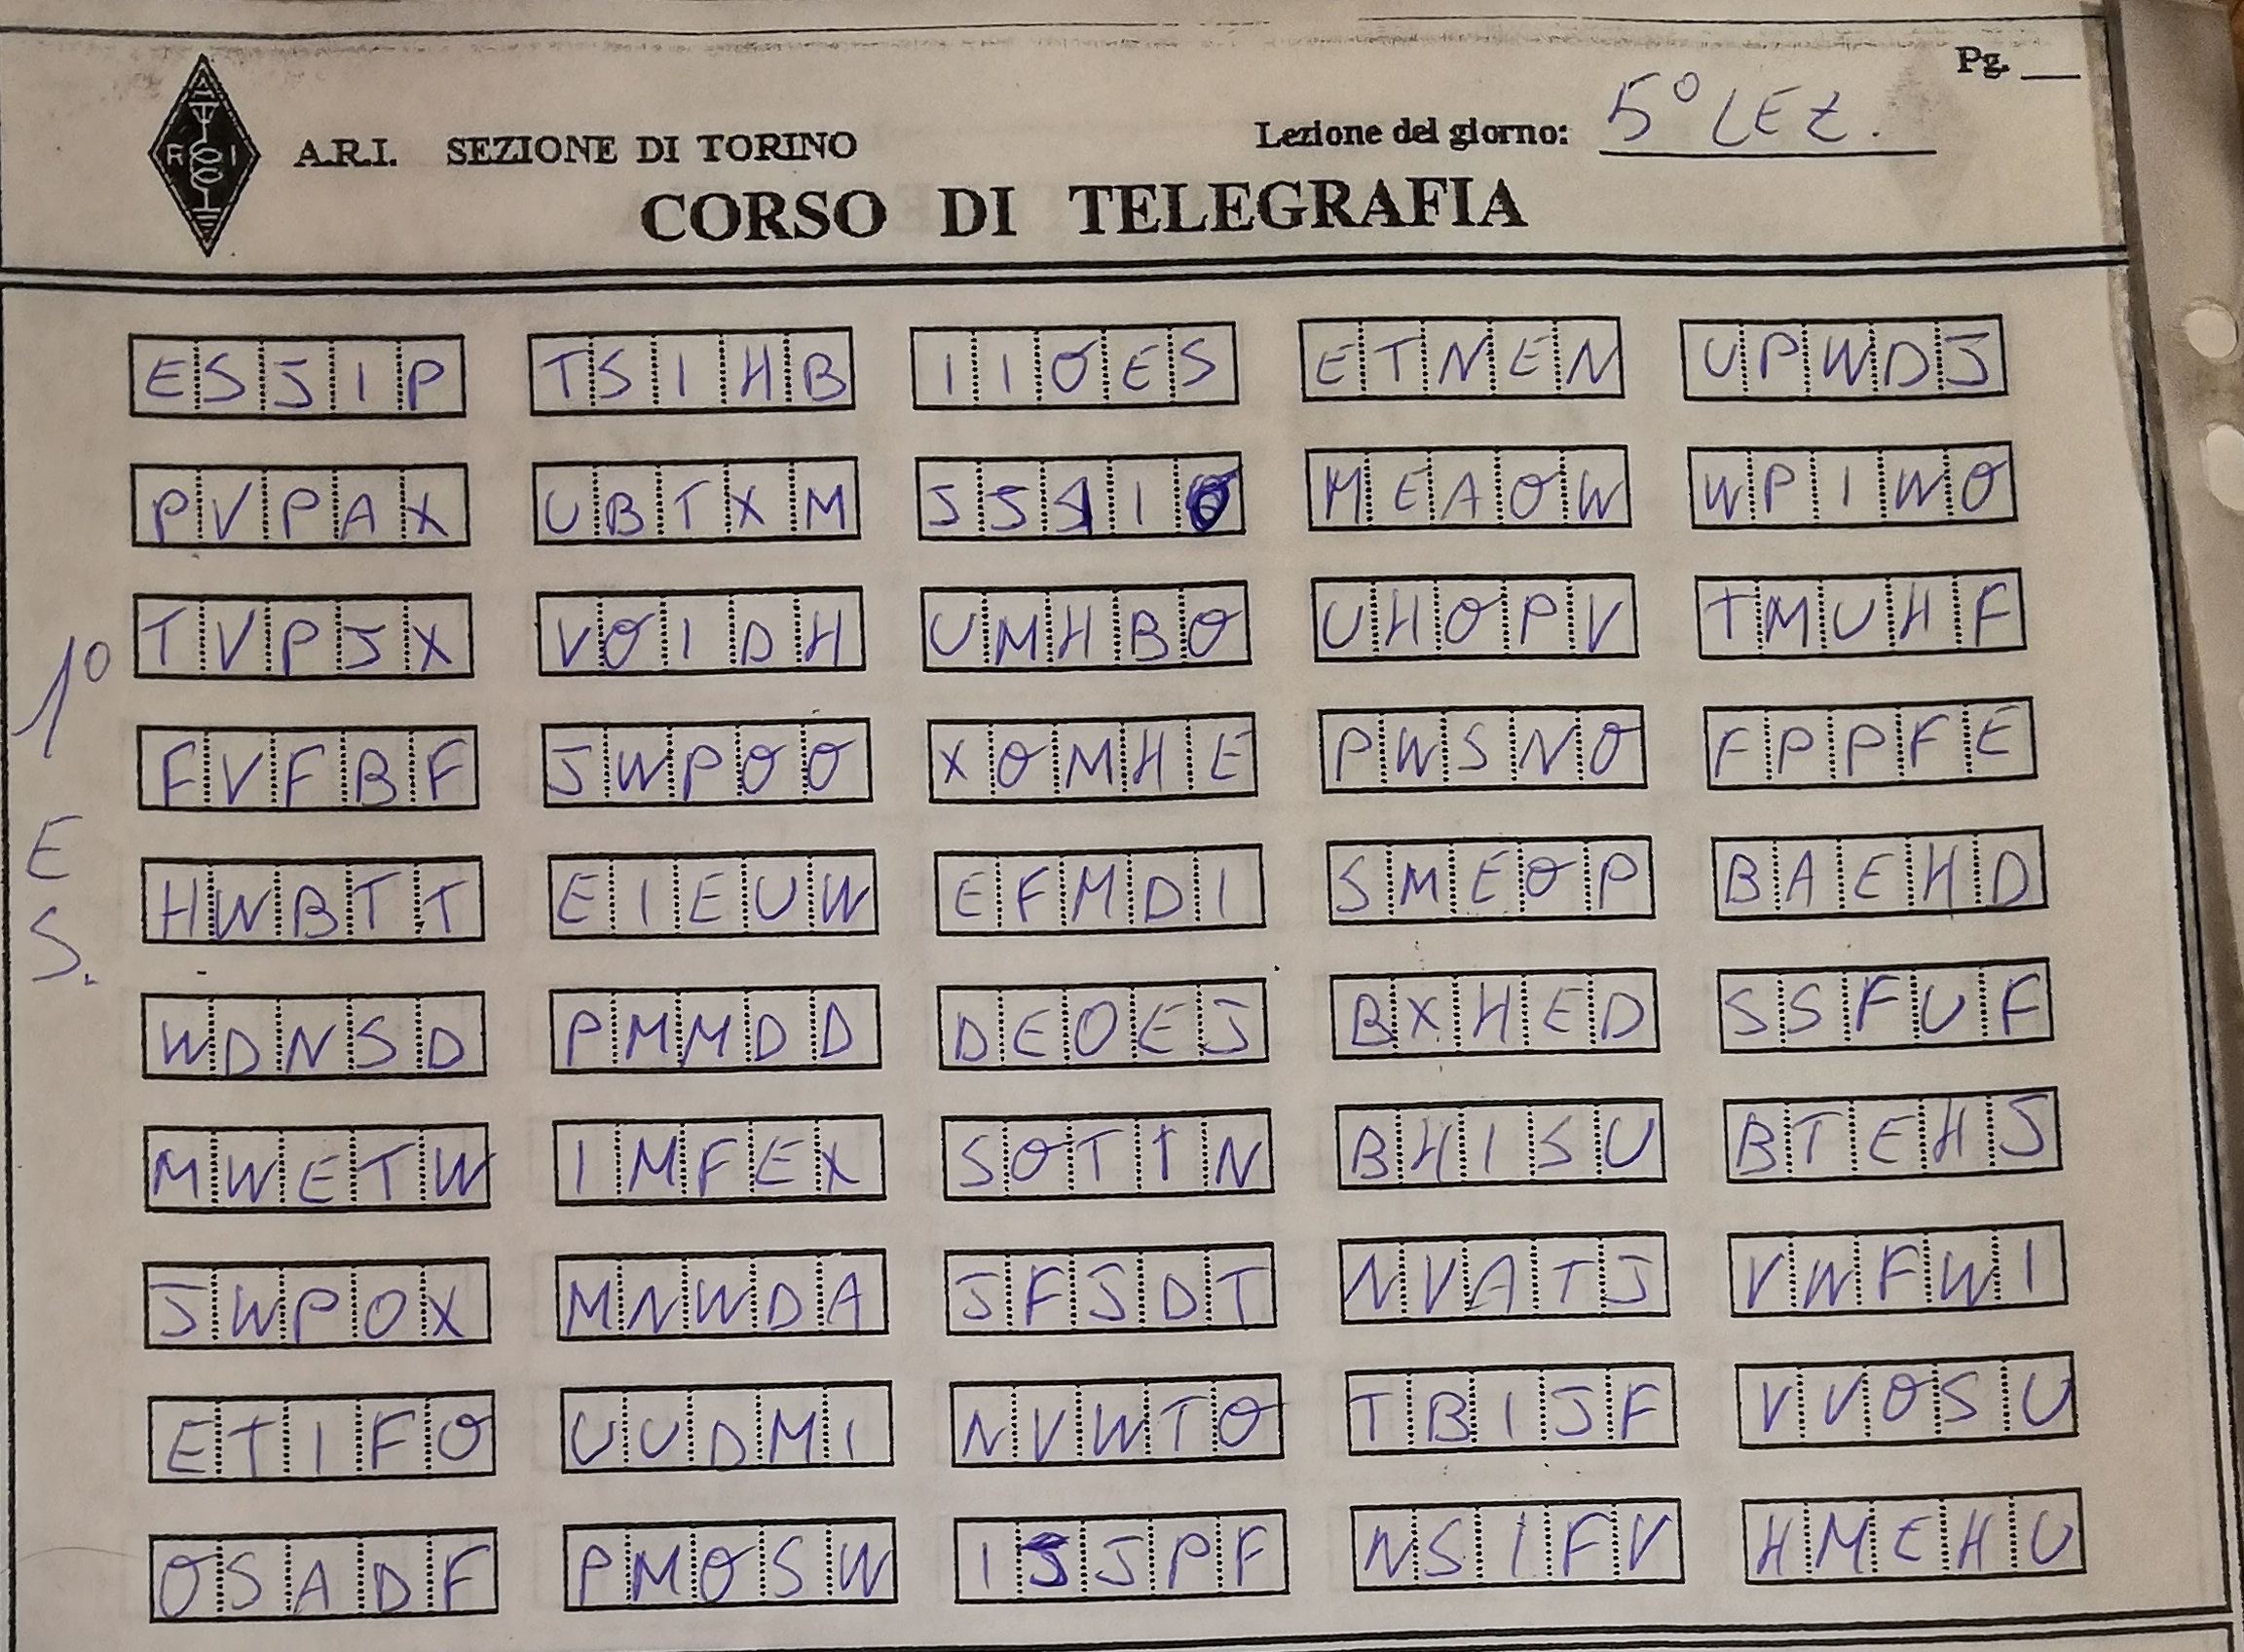 Pg.
A.R.I. SEZIONE DI TORINO Lezione del giorno: 5° LEZ.
CORSO DI TELEGRAFIA
ESJIP TSIHB IIOES ETNEN UPWDJ
PVPAX UBTXM MEAOW WPIWO
1° TVPJX VOIDH UMHBO UHOPV TMUHF
FVFBF JWPOO XOMHE PWSNO FPPFE
E HWBTT EIEUW EFMDI SMEOP BAEHD
S. WDNSD PMMDD DEOEJ BXHED SSFUF
MWETW IMFEX SOTTN BHISU BTEHS
JWPOX MNWDA JFJDT NVATJ VWFWI
ETIFO UUDMI NVWTO TBIJF VVOSU
OSADF PMOSW NSIFV HMEHU